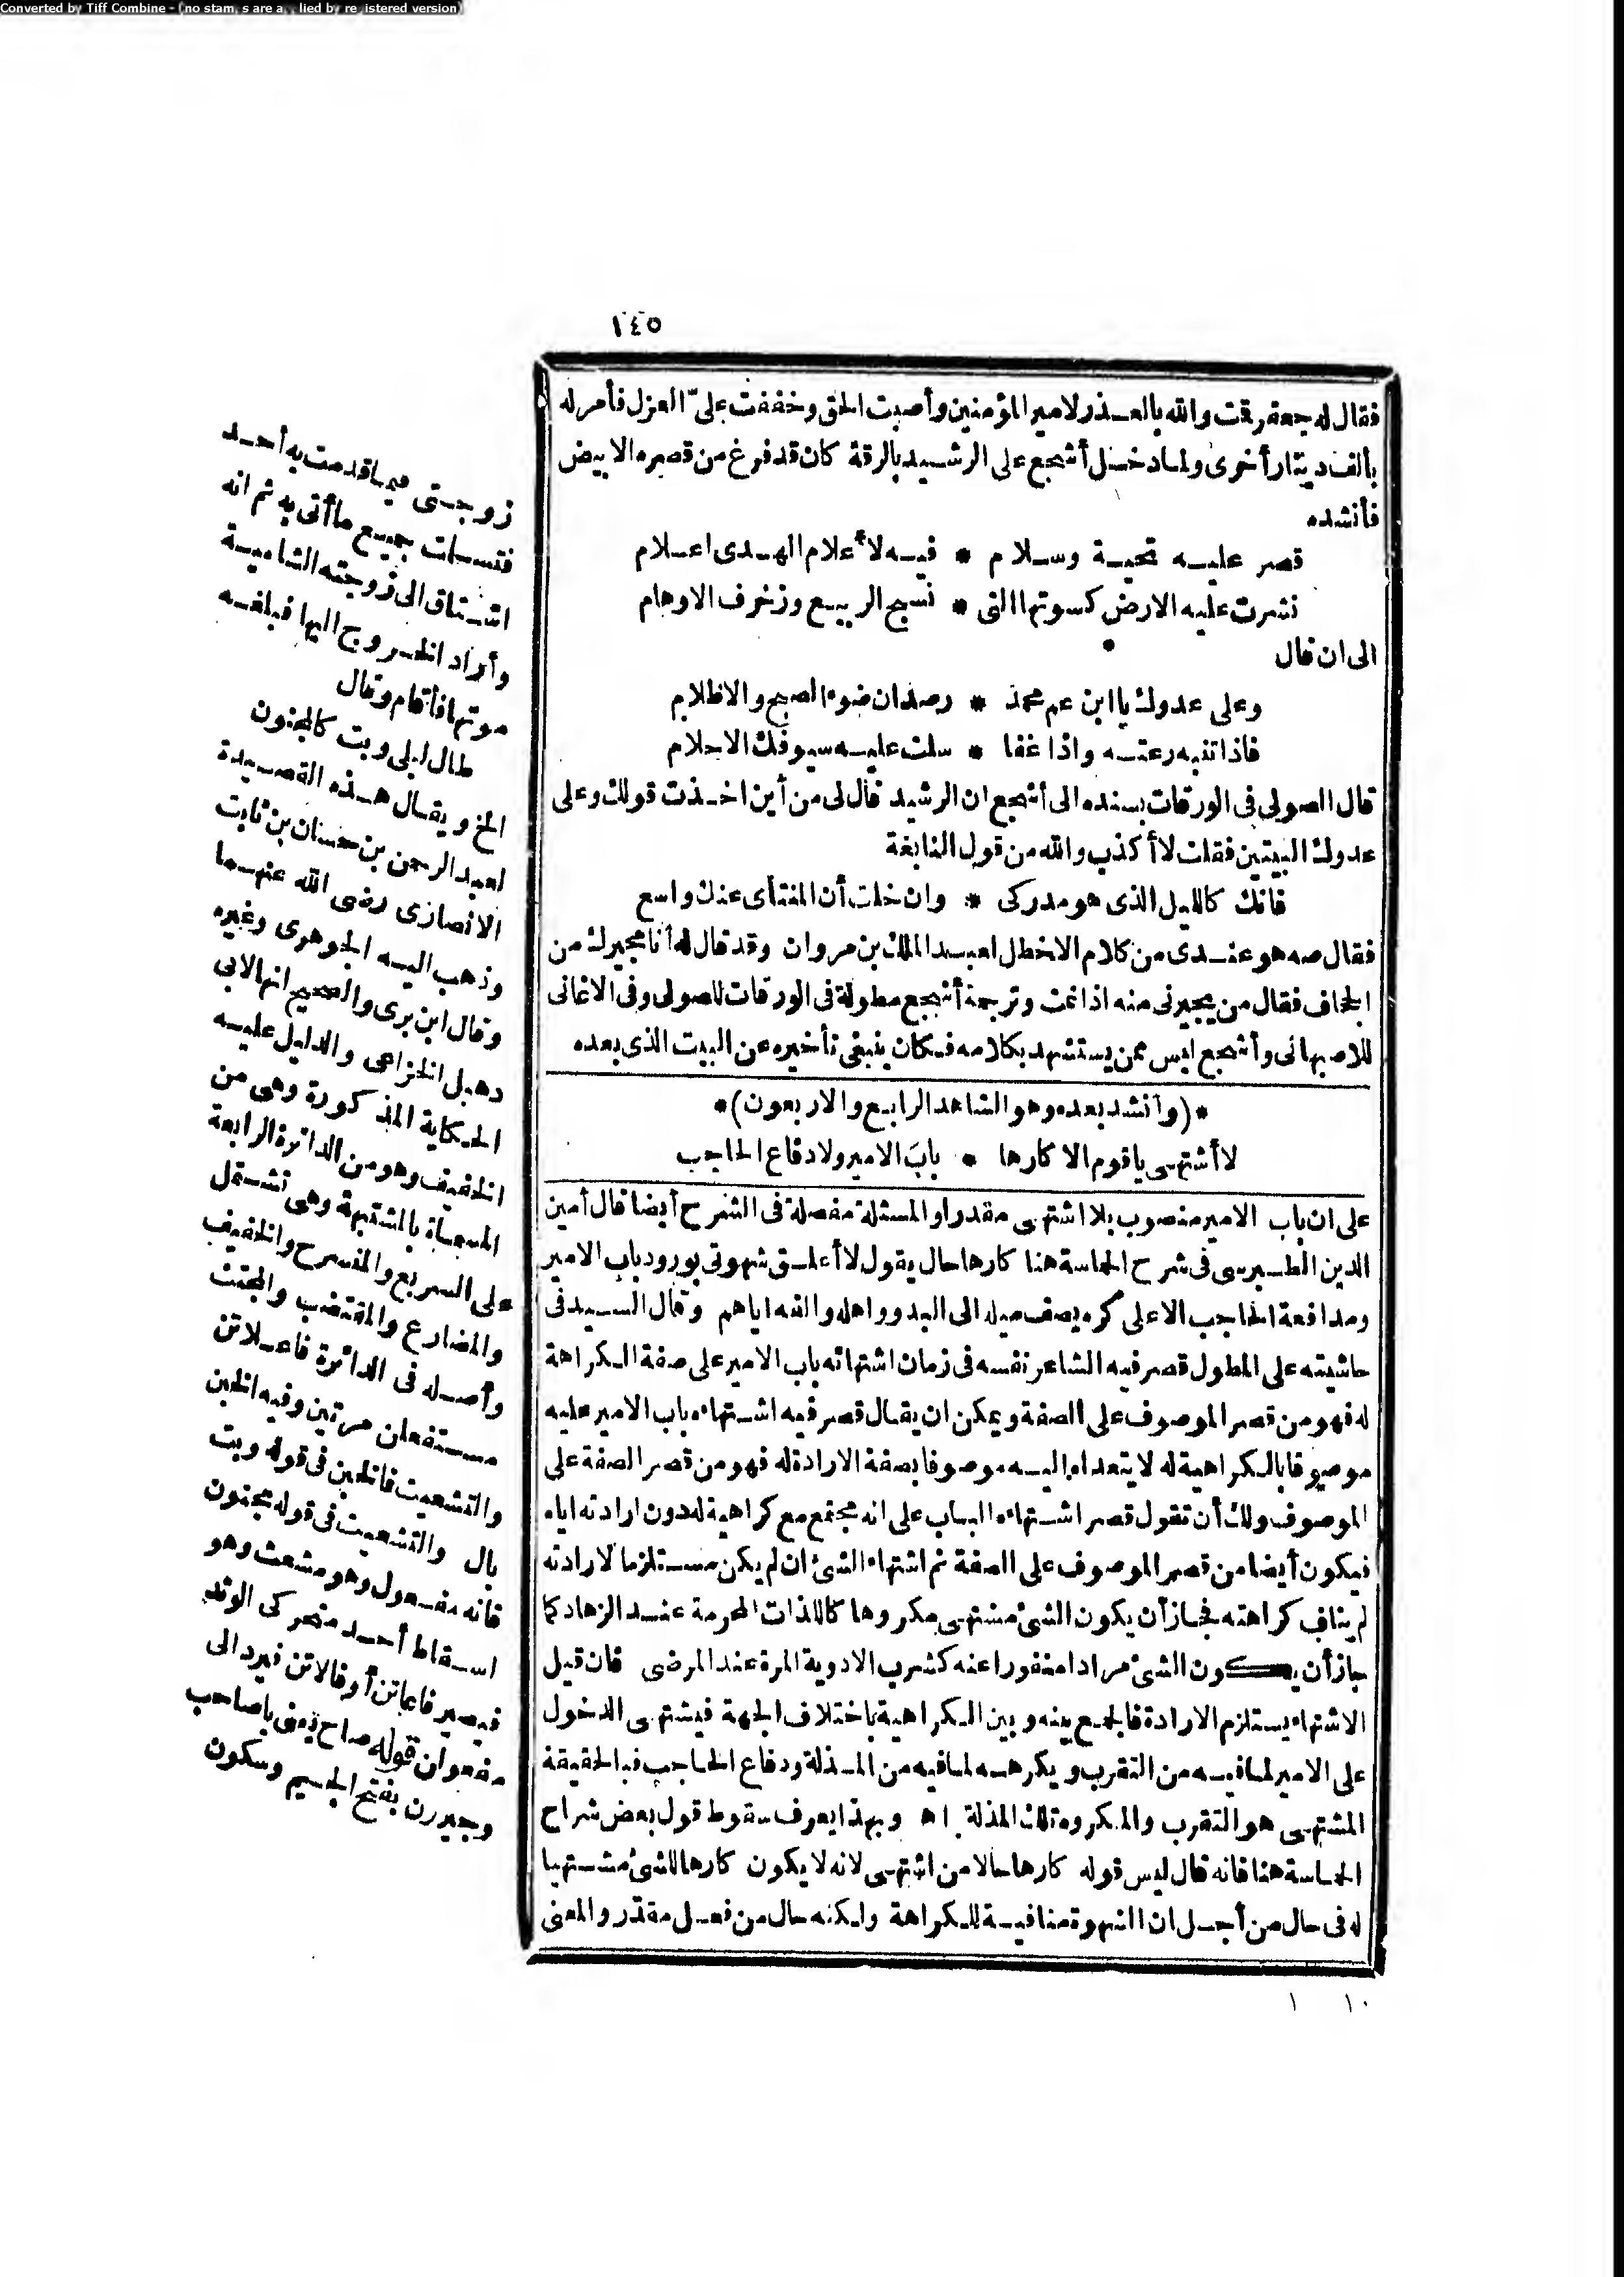 Converted by Tiff Combine - (no stamps are applied by registered version)
١٤٥
فقال له جعفر قمت والله بالعذر لامير المؤمنين وأصبت الحق وخففت علىّ العزل فأمر له
بألف دينار أخرى ولما دخل أشجع على الرشيد بالرقة كان قد فرغ من قصره الابيض
فأنشده
قصر عليه تحية وسلام * فيه لأعلام الهدى اعلام
نشرت عليه الارض كسوتها التى * نسج الربيع وزخرف الاوهام
الى ان قال
وعلى عدوك يا ابن عم محمد * رصدان ضوء الصبح والاظلام
فاذا تنبه رعته واذا غفا * سلت عليه سيوفك الاحلام
قال الصولى فى الورقات بسنده الى أشجع ان الرشيد قال لى من أين اخذت قولك وعلى
عدوك البيتين فقلت لا أكذب والله من قول النابغة
فانك كالليل الذى هو مدركى * وان خلت أن المنتأى عنك واسع
فقال صه هو عندى من كلام الاخطل لعبد الملك بن مروان وقد قال له أنا مجيرك من
الجحاف فقال من يجيرنى منه اذا نمت وترجمة أشجع مطولة فى الورقات للصولى وفى الاغانى
للاصبهانى وأشجع ليس ممن يستشهد بكلامه فكان ينبغى تأخيره عن البيت الذى بعده
*(وأنشد بعده وهو الشاهد الرابع والاربعون)*
لا أشتهى يا قوم الا كارها * بابَ الامير ولا دفاع الحاجب
على ان باب الامير منصوب بلا اشتهى مقدرا والمسئلة مفصلة فى الشرح أيضا قال أمين
الدين الطبرسى فى شرح الحماسة هنا كارها حال يقول لا أعلق شهوتى بورود باب الامير
ومدافعة الحاجب الا على كره يصف ميله الى البدو واهله والفه اياهم وقال السيد فى
حاشيته على المطول قصر فيه الشاعر نفسه فى زمان اشتهائه باب الامير على صفة الكراهة
له فهو من قصر الموصوف على الصفة ويمكن ان يقال قصر فيه اشتهاء باب الامير عليه
موصوفا بالكراهية له لا يتعداه اليه موصوفا بصفة الارادة له فهو من قصر الصفة على
الموصوف ولك أن تقول قصر اشتهاء الباب على انه مجتمع مع كراهية له دون ارادته اياه
فيكون أيضا من قصر الموصوف على الصفة ثم اشتهاء الشئ ان لم يكن مستلزما لارادته
لم يناف كراهته فجاز أن يكون الشئ مشتهى مكروها كاللذات المحرمة عند الزهاد كما
جاز أن يكون الشئ مرادا منفورا عنه كشرب الادوية المرة عند المرضى فان قيل
الاشتهاء يستلزم الارادة فالجمع بينه وبين الكراهية باختلاف الجهة فيشتهى الدخول
على الامير لما فيه من التقرب ويكرهه لما فيه من المذلة ودفاع الحاجب فبالحقيقة
المشتهى هو التقرب والمكروه تلك المذلة اه وبهذا يعرف سقوط قول بعض شراح
الحماسة هنا فانه قال ليس قوله كارها حالا من اشتهى لانه لا يكون كارها للشئ مشتهيا
له فى حال من أجل ان الشهوة منافية للكراهة ولكنه حال من فعل مقدر والمعنى
١٠ ١
زوجتى فيما قدمت به أحد
فتسلت جميع ما أتى به ثم انه
اشتاق الى زوجته الشامية
وأراد الخروج اليها فبلغه
موتها فأقام وقال
طال ليلى وبت كالمجنون
الخ ويقال هذه القصيدة
لعبد الرحمن بن حسان بن ثابت
الانصارى رضى الله عنهما
وذهب اليه الجوهرى وغيره
وقال ابن برى والصحيح انها لابى
دهبل الخزاعى والدليل عليه
الحكاية المذكورة وهى من
الخفيف وهو من الدائرة الرابعة
المسماة بالمشتبهة وهى تشتمل
على السريع والمنسرح والخفيف
والمضارع والمقتضب والمجتث
وأصله فى الدائرة فاعلاتن
مستفعلن مرتين وفيه الخبن
والتشعيث فالخبن فى قوله وبت
بال والتشعيث فى قوله مجنون
فانه مفعول وهو مشعث وهو
اسقاط أحد متحركى الوتد
فيصير فاعاتن أو فالاتن فيرد الى
مفعولن قوله صاح يعنى يا صاحب
وجيرون بفتح الجيم وسكون